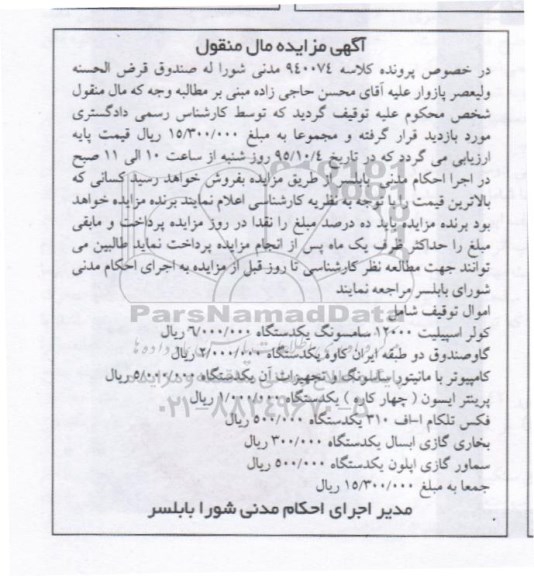 آگهی مزایده مال منقول
در خصوص پرونده کلاسه ۹۴۰۰۷۴ مدنی شورا له صندوق قرض الحسنه
ولیعصر پازوار علیه آقای محسن حاجی زاده مبنی بر مطالبه وجه که مال منقول
شخص محکوم علیه توقیف گردید که توسط کارشناس رسمی دادگستری
مورد بازدید قرار گرفته و مجموعا به مبلغ ۱۵/۳۰۰/۰۰۰ ریال قیمت پایه
ارزیابی می گردد که در تاریخ ۹۵/۱۰/۴ روز شنبه از ساعت ۱۰ الی ۱۱ صبح
در اجرا احکام مدنی بابلسر از طریق مزایده بفروش خواهد رسید کسانی که
بالاترین قیمت را با توجه به نظریه کارشناسی اعلام نمایند برنده مزایده خواهد
بود برنده مزایده باید ده درصد مبلغ را نقدا در روز مزایده پرداخت و مابقی
مبلغ را حداکثر ظرف یک ماه پس از انجام مزایده پرداخت نماید طالبین می
توانند جهت مطالعه نظر کارشناسی تا روز قبل از مزایده به اجرای احکام مدنی
شورای بابلسر مراجعه نمایند
ParsNamadData
اموال توقیف شامل
کولر اسپیلیت ۱۲۰۰۰ سامسونگ یکدستگاه ۶/۰۰۰/۰۰۰ ریال
گاوصندوق دو طبقه ایران کاوه یکدستگاه ۲/۰۰۰/۰۰۰ ریال
کامپیوتر با مانیتور سامسونگ و تجهیزات آن یکدستگاه ۵/۰۰۰/۰۰۰ ریال
پرینتر اپسون ( چهار کاره ) یکدستگاه ۱/۰۰۰/۰۰۰ ریال
۰۲۱-۸۸۳۴۹۶۷۰-۵
فکس تلکام ا-اف ۳۱۰ یکدستگاه ۵۰۰/۰۰۰ ریال
بخاری گازی ابسال یکدستگاه ۳۰۰/۰۰۰ ریال
سماور گازی اپلون یکدستگاه ۵۰۰/۰۰۰ ریال
جمعا به مبلغ ۱۵/۳۰۰/۰۰۰ ریال
مدیر اجرای احکام مدنی شورا بابلسر